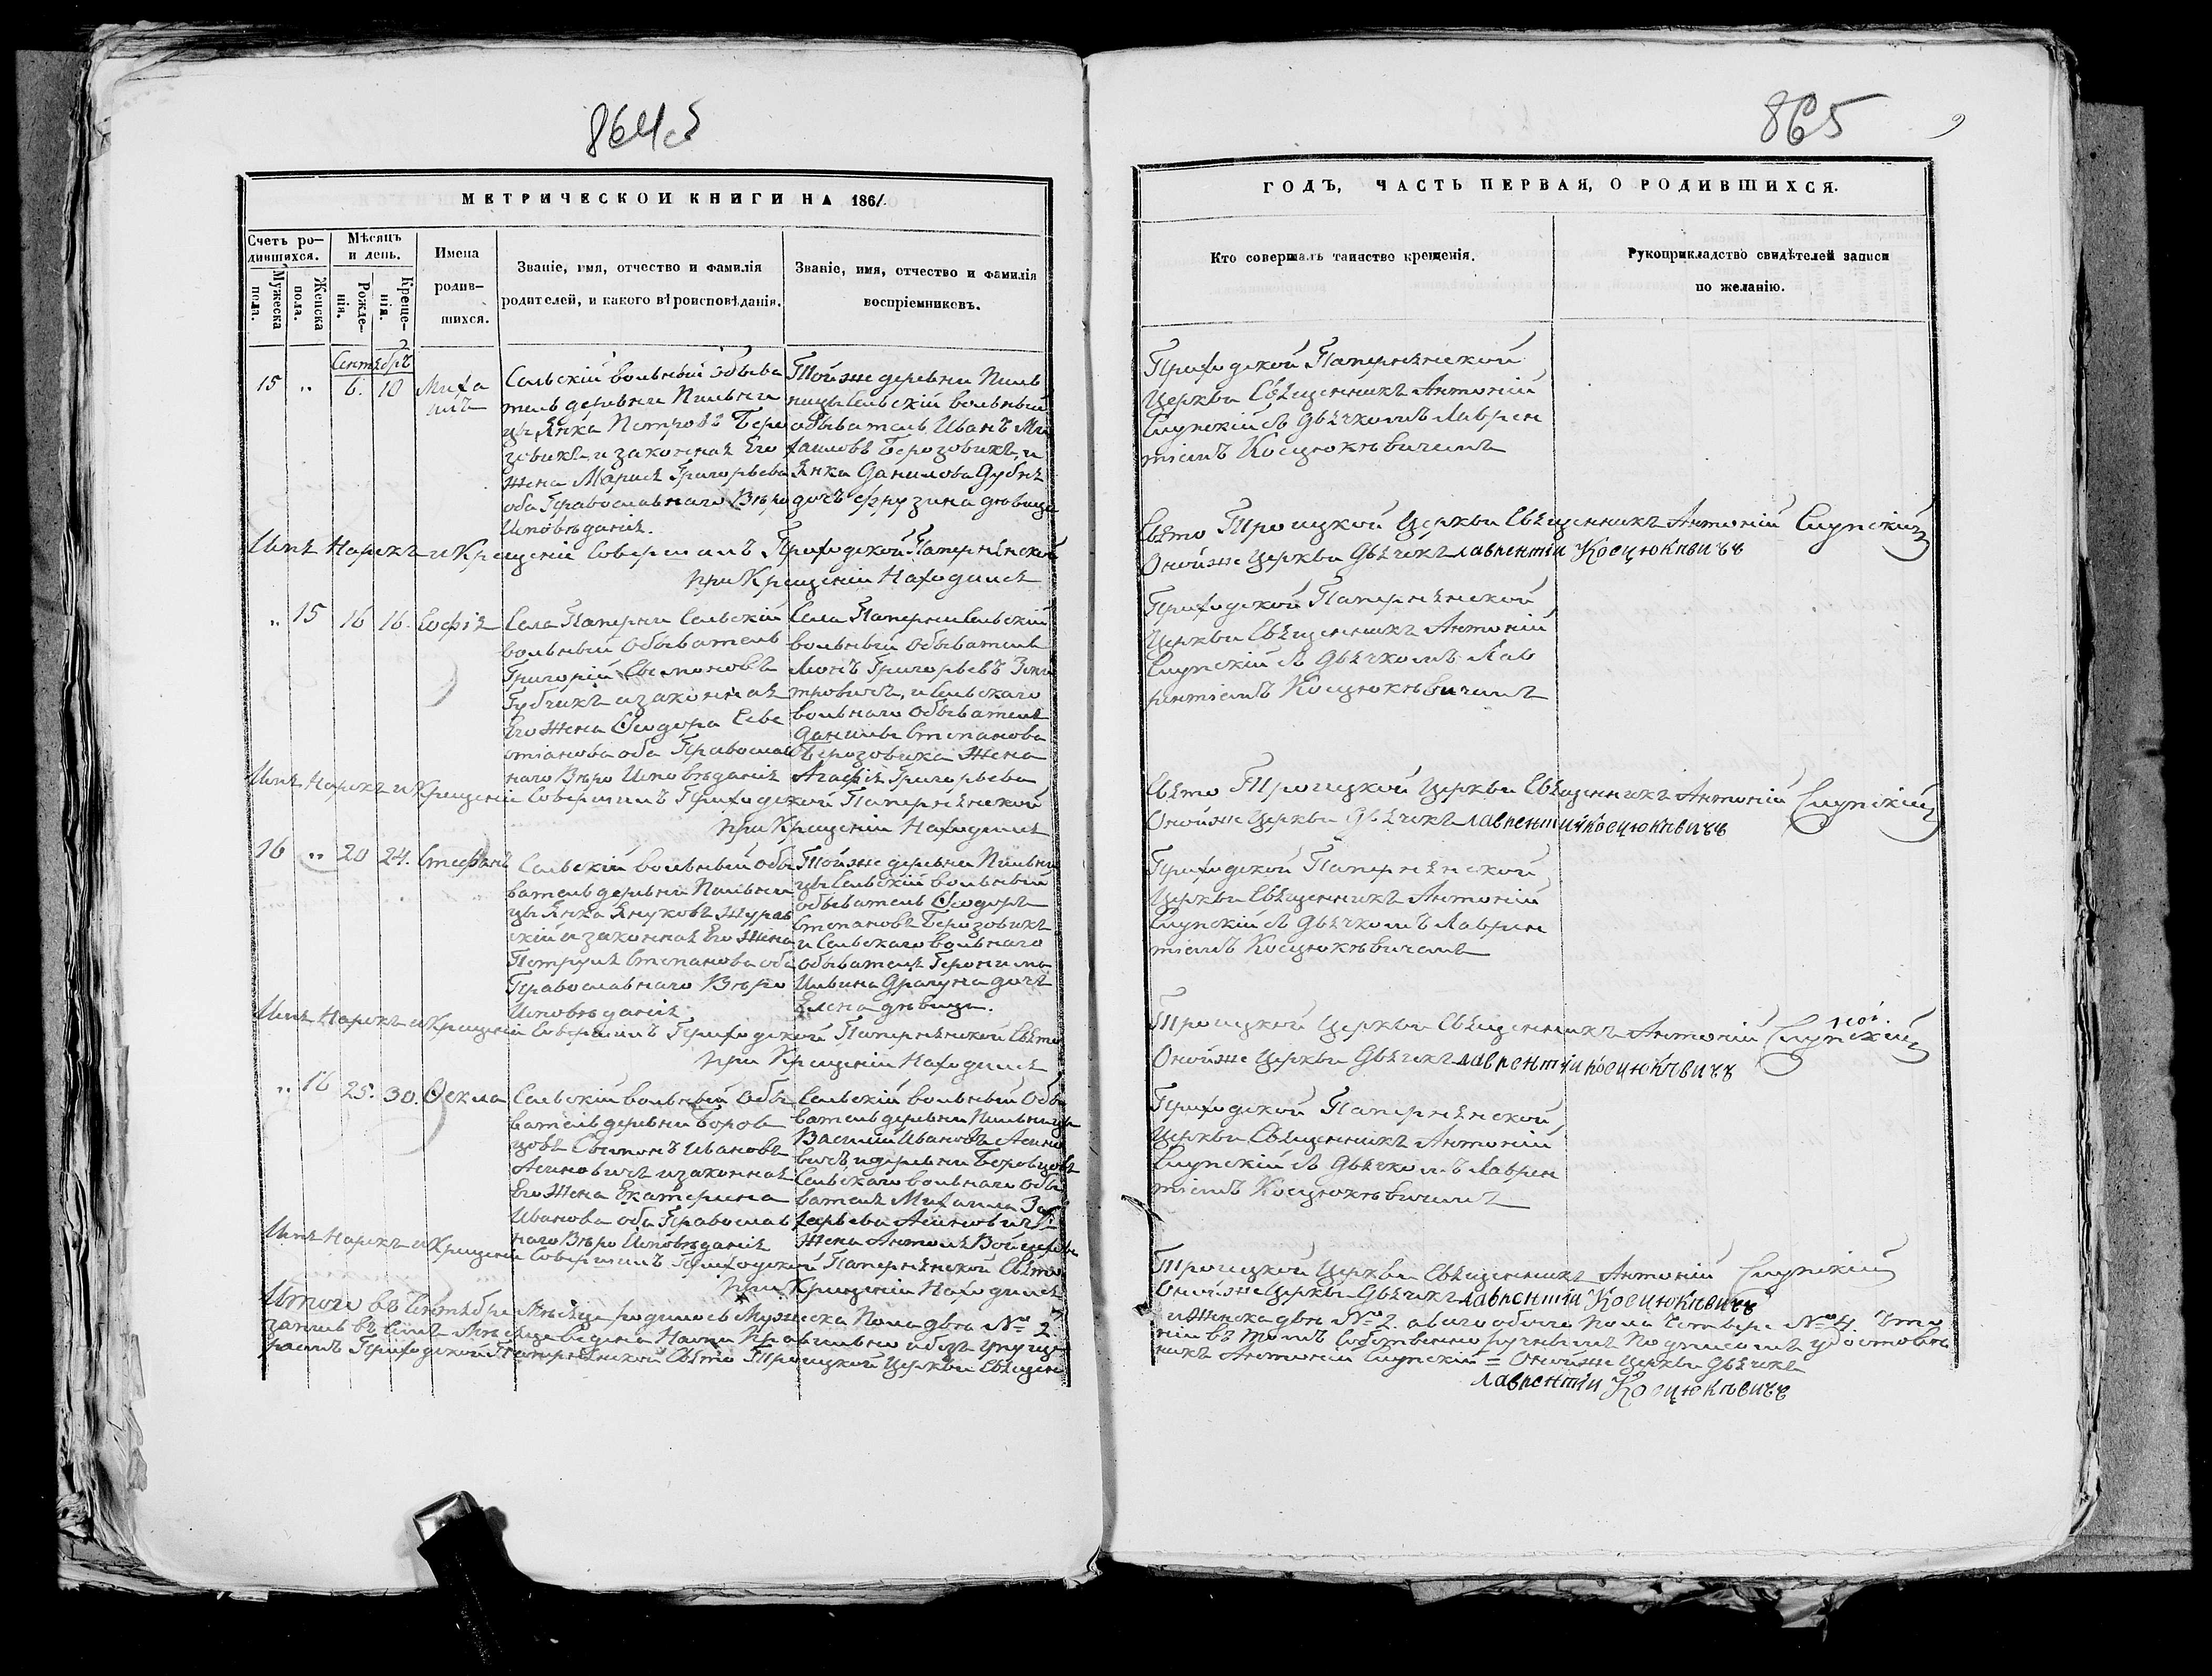 864об
865
9
МЕТРИЧЕСКОЙ КНИГИ НА 1861
ГОДЪ, ЧАСТЬ ПЕРВАЯ, О РОДИВШИХСЯ.
Счетъ родившихся.
Мужеска пола.
Женска пола.
Мѣсяцъ и день.
Рожденія.
Крещенія.
Имена родившихся.
Званіе, имя, отчество и фамилія
родителей, и какого вѣроисповѣданія.
Званіе, имя, отчество и фамилія
воспріемниковъ.
Кто совершалъ таинство крещенія.
Рукоприкладство свидѣтелей записи
по желанію.
Сентябрь
15 „ 6. 10 Михаилъ
Сельскій вольный обыва
тель деревни Пильни
цы Янка Петровъ Бере
зовикъ, и законная Его
жена Марія Григорьева
оба Православнаго Вѣро
Исповѣданія.
Той же деревни Пильн
ицы Сельскій вольный
обыватель Иванъ Ми
хаиловъ Березовикъ, и
Янка Данилова
дочь Фрузина дѣвица
Приходской Папернянской
Церкви Священникъ Антоній
Слупскій съ Дьячкомъ Лаврен
тіемъ Косцюкѣвичемъ
Имя Нарекъ и Крещеніе Совершилъ Приходской Папернянской
Свято Троицкой Церкви Священникъ Антоній Слупскій
при Крещеніи Находился
Оной же Церкви Дьячекъ Лаврентій Косцюкѣвичъ
„ 15 16 16. Софія
Села Паперни Сельскій
вольный обыватель
Григорій Сымоновъ
Губчикъ и законная
Его жена Ѳеодора Севе
стіанова оба Православ
наго Вѣро Исповѣданія
Села Паперни Сельскій
вольный обыватель
Григорьевъ
и Сельскаго
вольнаго обывателя
Данилы Степанова
Березовика жена
Агафія Григорьева
Приходской Папернянской
Церкви Священникъ Антоній
Слупскій съ Дьячкомъ Лав
рентіемъ Косцюкѣвичемъ
Имя Нарекъ и Крещеніе Совершилъ Приходской Папернянской
Свято Троицкой Церкви Священникъ Антоній Слупскій
при Крещеніи Находился
Оной же Церкви Дьячекъ Лаврентій Косцюкѣвичъ
16 „ 20 24. Стефанъ
Сельскій вольный обы
ватель деревни Пильни
цы Янка Януковъ Журав
скій и законная Его жена
Петруля Степанова оба
Православнаго Вѣро
Исповѣданія
Той же деревни Пильни
цы Сельскій вольный
обыватель Ѳеодоръ
Степановъ Березовикъ
и Сельскаго вольнаго
обывателя Геронима
Ильина Драгуна дочь
Елена дѣвица.
Приходской Папернянской
Церкви Священникъ Антоній
Слупскій съ Дьячкомъ Лаврен
тіемъ Косцюкѣвичемъ
Имя Нарекъ и Крещеніе Совершилъ Приходской Папернянской Свято
Троицкой Церкви Священникъ Антоній Слупскій
при Крещеніи Находился
Оной же Церкви Дьячекъ Лаврентій Косцюкѣвичъ
„ 16 25. 30. Ѳекла
Сельскій вольный Обы
ватель деревни Боров
цовъ Сымонъ Ивановъ
Асиновичъ и законная
Его жена Екатерина
Иванова оба Православ
наго Вѣро Исповѣданія
Сельскій вольный Обы
ватель деревни Пильницы
Василій Ивановъ Асино
вичъ и деревни Боровцовъ
Сельскаго вольнаго Обы
вателя Михаила За
харьева Асиновича
жена Антоля
Приходской Папернянской
Церкви Священникъ Антоній
Слупскій съ Дьячкомъ Лаврен
тіемъ Косцюкѣвичемъ
Имя Нарекъ и Крещеніе Совершилъ Приходской Папернянской Свято
Троицкой Церкви Священникъ Антоній Слупскій
при Крещеніи Находился
Оной же Церкви Дьячекъ Лаврентій Косцюкѣвичъ
Итого въ Сентябрѣ Мѣсяцѣ родилось Мужеска Пола два № 2.
и Женска два № 2. а всего обоего Пола Четыре № 4. Что
Приходской Папернянской Свято Троицкой Церкви Священ
никъ Антоній Слупскій = Оной же Церкви Дьячекъ
Лаврентій Косцюкѣвичъ